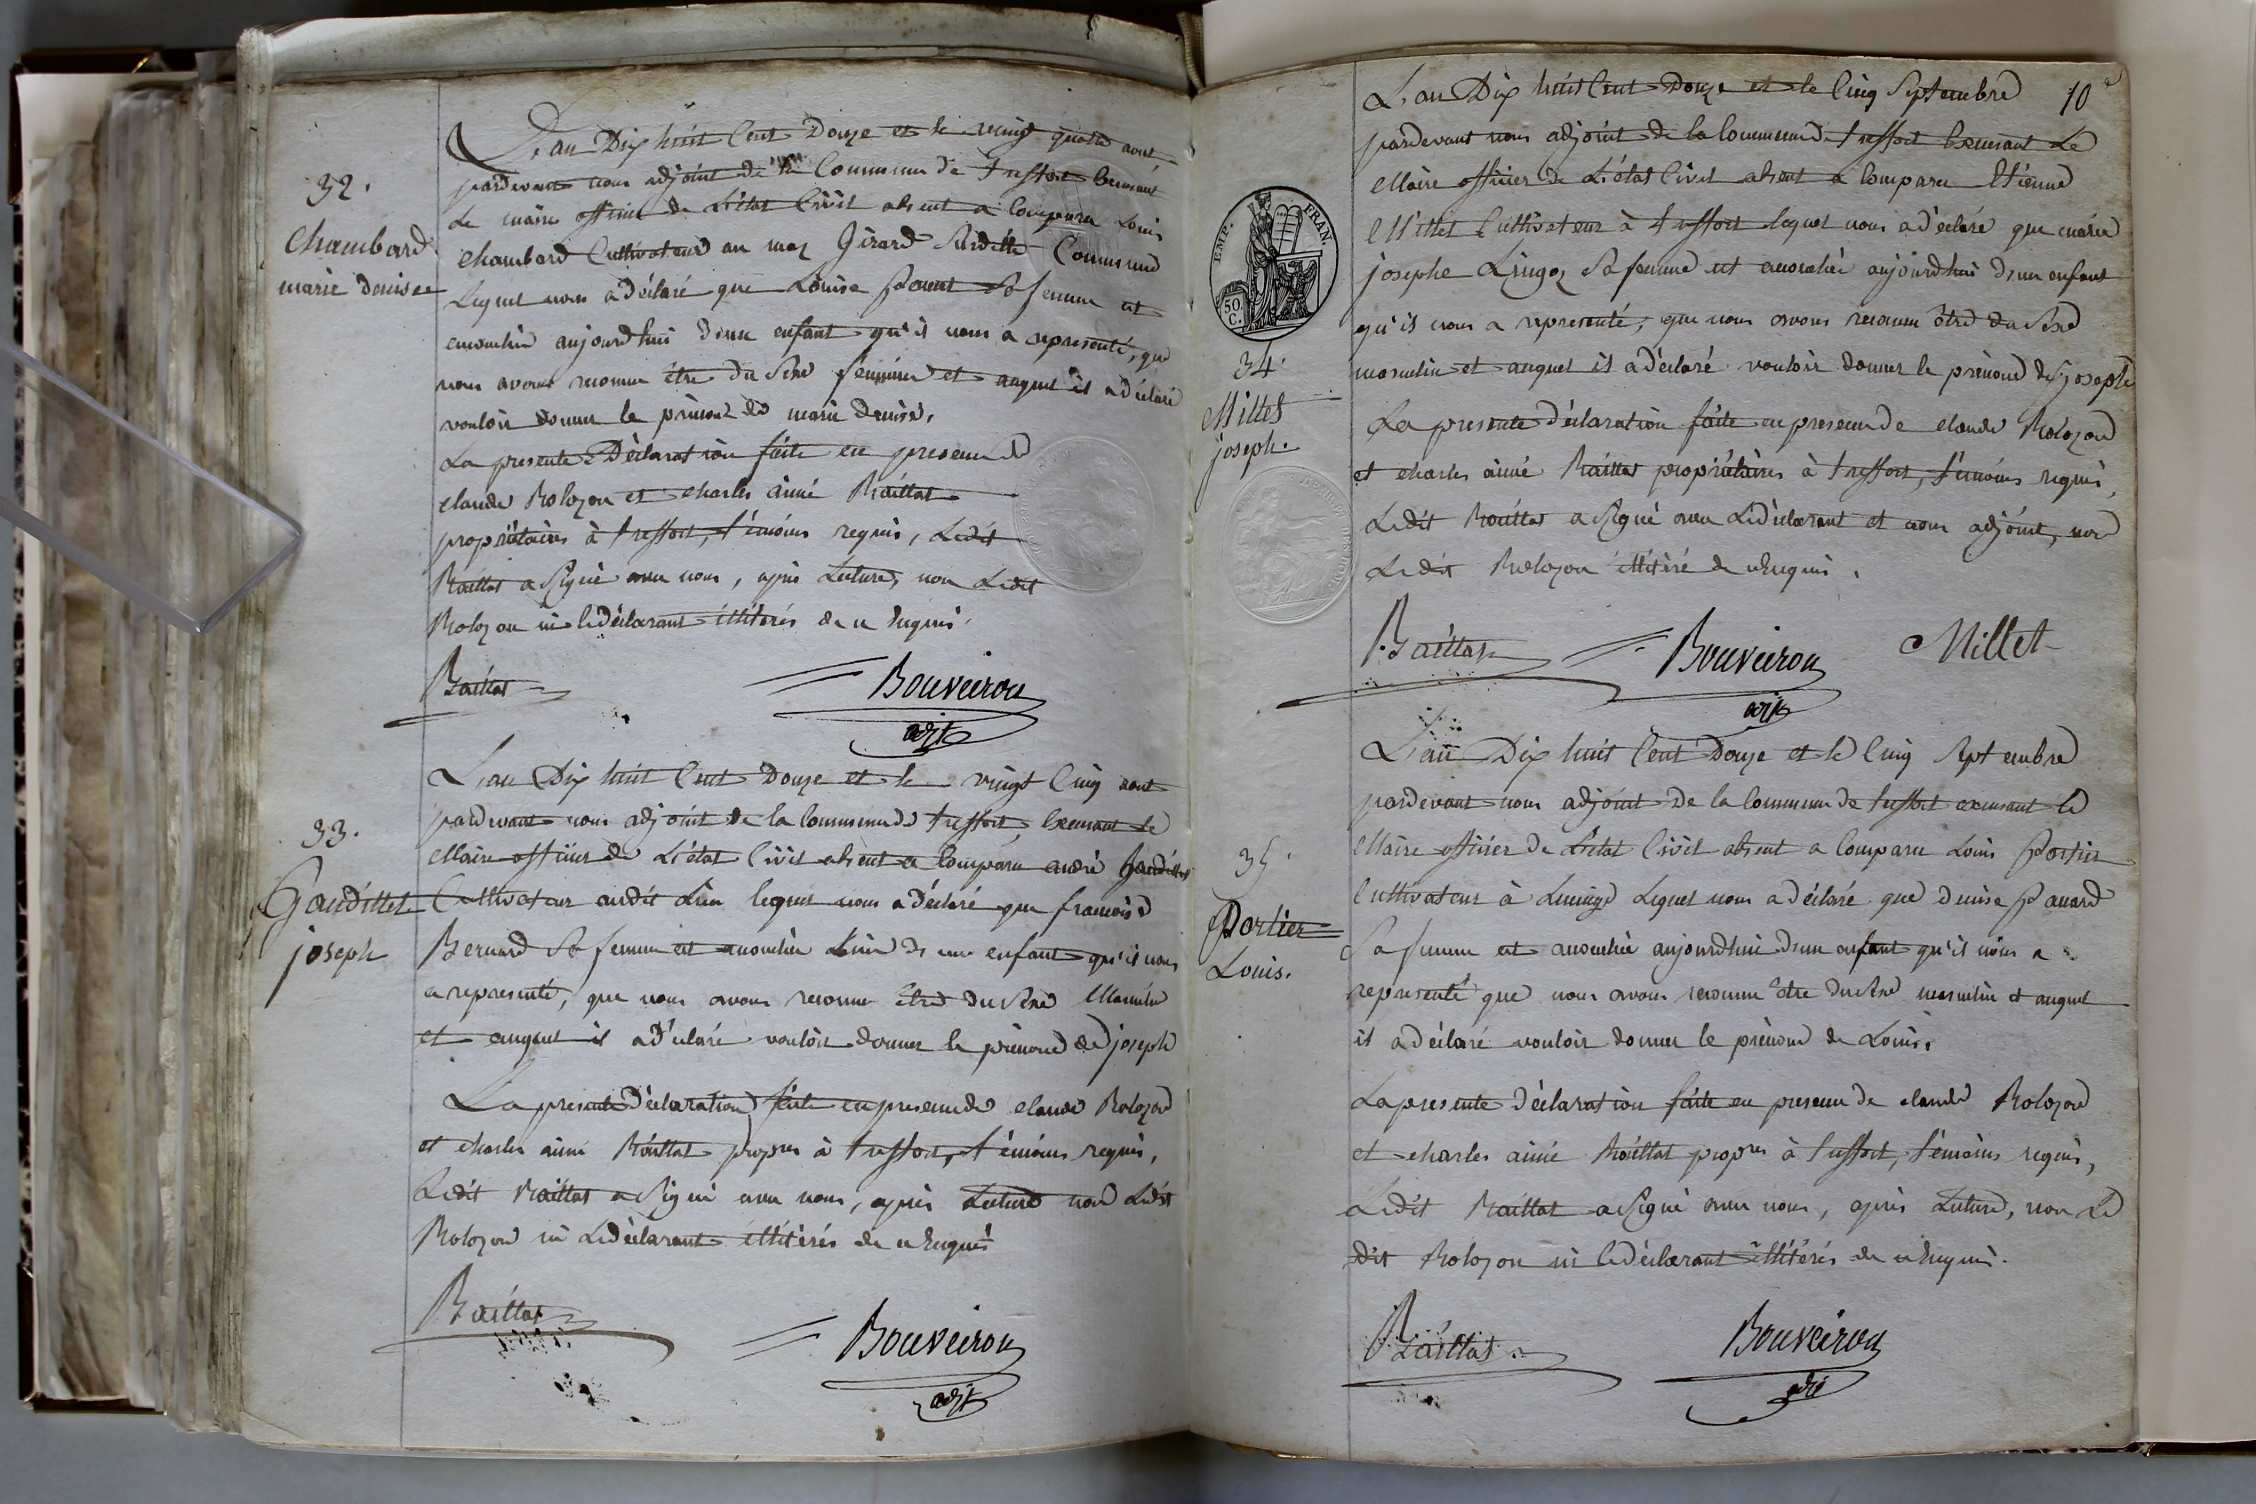 32.
Chambard
marie denise
L'an Dix huit Cent Douze et le vingt quatre aout
pardevant nous adjoint de la Commune de treffort
le maire officier de L'état Civil absent a Comparu Louis
Chambard Cultivateur au maz Girard Susditte Commune
Lequel nous a déclaré que Louise sa femme est
accouchée aujourd'hui d'un enfant qu'il nous a representé, que
nous avons reconnu être du Sexe féminin et auquel il a déclaré
vouloir donner le prénom de marie denise.
La presente Déclaration faite en presence de
claude Rolozon et charles aimé Raillat
propriétaires à treffort, témoins requis, Ledit
Raillat a signé avec nous, après Lecture, non Ledit
Rolozon ni le déclarant illitérés de ce Enquis.
Raillat
Bouveiron
adjt
33.
Gaudillet
joseph
L'an Dix huit Cent Douze et le vingt Cinq aout
pardevant nous adjoint de la Commune de treffort, Exerçant le
Maire officier de L'état Civil absent a Comparu andré Gaudillet
Cultivateur audit Lieu lequel nous a déclaré que françoise
Bernard Sa femme est accouchée d'un enfant qu'il nous
a representé, que nous avons reconnu être du Sexe Masculin
et auquel il a déclaré vouloir donner le prénom de joseph
La presente Déclaration faite en presence de claude Rolozon
et charles aimé Raillat propres à treffort, témoins requis,
Ledit Raillat a signé avec nous, après Lecture non Ledit
Rolozon ni Le déclarant illitérés de ce Enquis
Raillat
Bouveiron
adjt
10e
EMP. FRAN.
50 C.
34.
Millet
joseph.
L'an Dix huit Cent Douze et le Cinq Septembre
pardevant nous adjoint de la Commune de treffort Exerçant Le
Maire officier de L'état Civil absent a Comparu Etienne
Millet Cultivateur à treffort lequel nous a déclaré que marie
josephe Lingoz Sa femme est accouchée aujourdhui d'un enfant
qu'il nous a representé, que nous avons reconnu être du Sexe
masculin et auquel il a déclaré vouloir donner le prénom de joseph
La presente déclaration faite en presence de claude Rolozon
et charles aimé Raillat propriétaires à treffort, témoins requis,
Ledit Raillat a Signé avec Le déclarant et nous adjoint, non
Ledit Rolozon illitéré de ce Enquis.
Raillat
Bouveiron
adjt
Millet
35.
Portier
Louis.
L'an Dix huit Cent Douze et le Cinq Septembre
pardevant nous adjoint de la Commune de treffort exerçant le
Maire officier de L'état Civil absent a Comparu Louis Portier
Cultivateur à Lucinge Lequel nous a déclaré que denise Panard
Sa femme est accouchée aujourdhui d'un enfant qu'il nous a
representé que nous avons reconnu Etre du Sexe masculin et auquel
il a déclaré vouloir donner le prénom de Louis.
La presente déclaration faite en presence de claude Rolozon
et charles aimé Raillat propres à treffort, témoins requis,
Ledit Raillat a Signé avec nous, après Lecture, non Le
dit Rolozon ni le déclarant illitérés de ce Enquis.
Raillat
Bouveiron
adjt